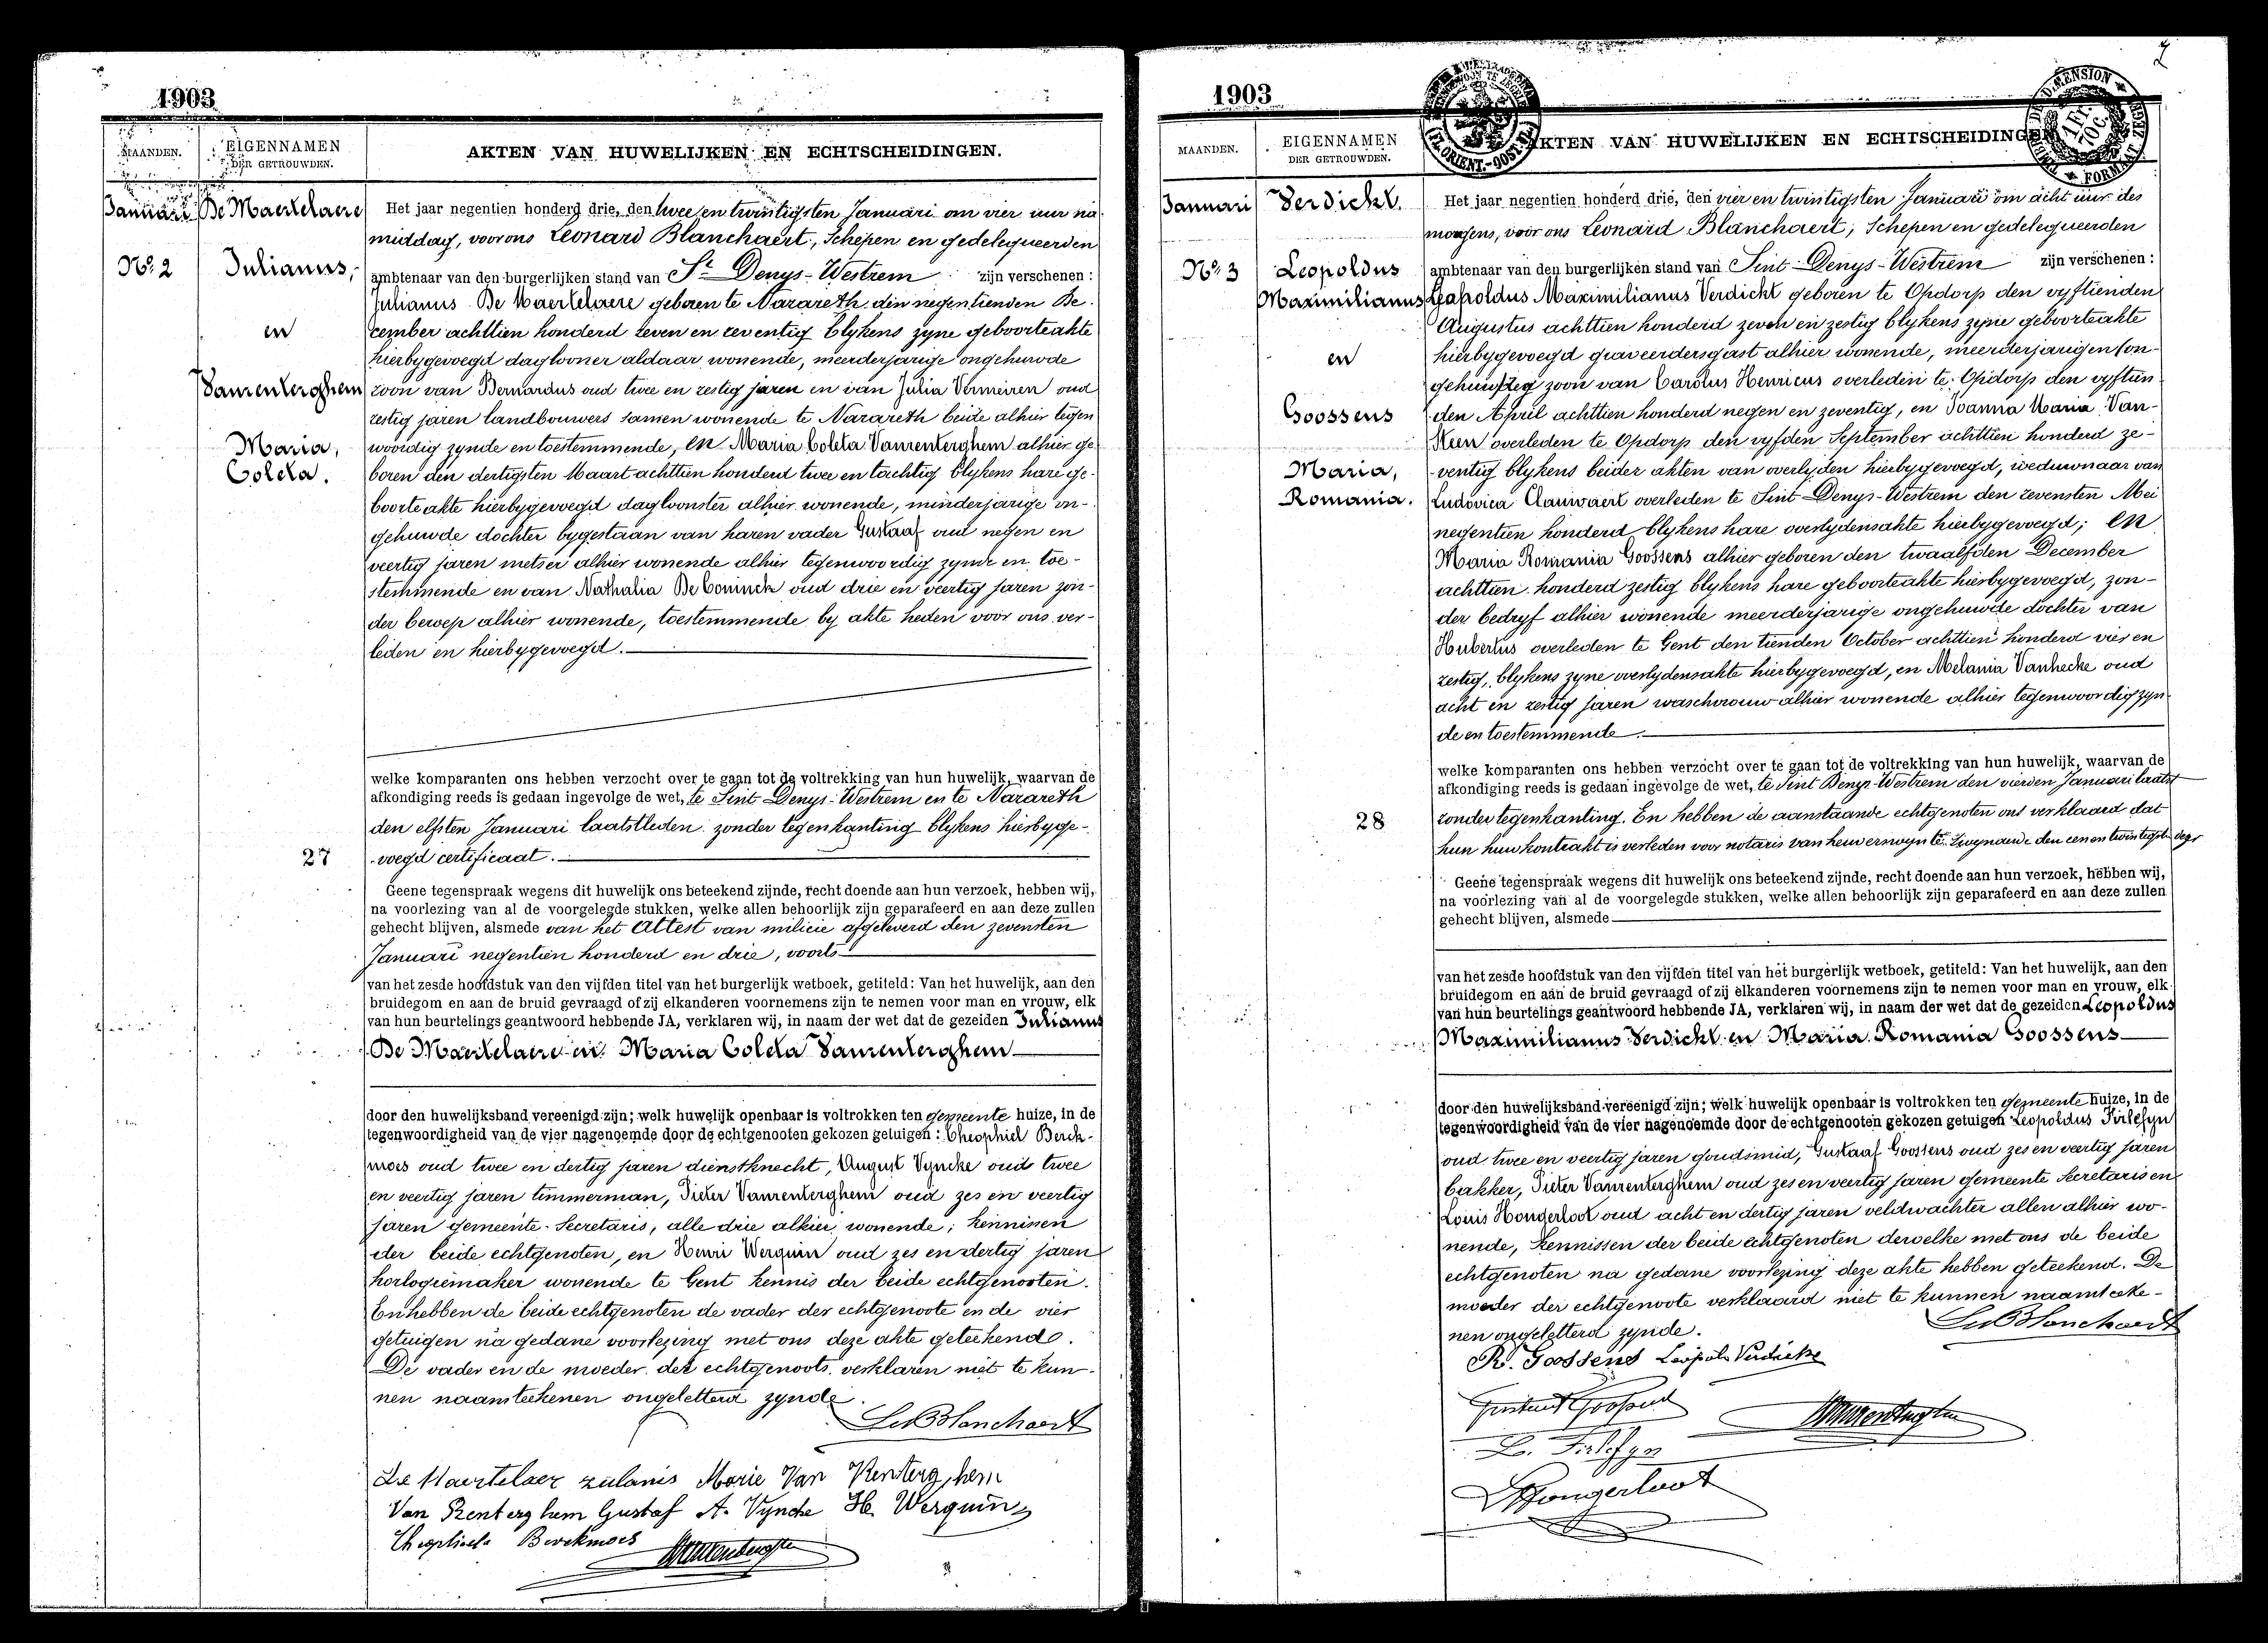 1903
MAANDEN.
EIGENNAMEN
DER GETROUWDEN.
AKTEN VAN HUWELIJKEN EN ECHTSCHEIDINGEN.
Januari
De Maertelaere
No. 2
Julianus,
en
Vanrenterghem
Maria,
Coleta.
27
Het jaar negentien honderd drie, den twee en twintigsten Januari om vier uur na
middag, voor ons Leonard Blanchaert, Schepen en gedelegueerden
ambtenaar van den burgerlijken stand van St. Denys-Westrem zijn verschenen:
Julianus De Maertelaere geboren te Nazareth den negentienden De-
cember achttien honderd zeven en zeventig blykens zyne geboorteakte
hierbygevoegd daglooner aldaar wonende, meerderjarige ongehuwde
zoon van Bernardus oud twee en zestig jaren en van Julia Vermeiren oud
zestig jaren landbouwers samen wonende te Nazareth beide alhier tegen
woordig zynde en toestemmende, en Maria Coleta Vanrenterghem alhier ge
boren den dertigsten Maart achttien honderd twee en tachtig blykens hare ge-
boorteakte hierbygevoegd dagloonster alhier wonende, minderjarige on-
gehuwde dochter bygestaan van haren vader Gustaaf oud negen en
veertig jaren metser alhier wonende alhier tegenwoordig zynde en toe-
stemmende en van Nathalia De Coninck oud drie en veertig jaren zon-
der beroep alhier wonende, toestemmende by akte heden voor ons ver-
leden en hierbygevoegd.
welke komparanten ons hebben verzocht over te gaan tot de voltrekking van hun huwelijk, waarvan de
afkondiging reeds is gedaan ingevolge de wet, te Sint-Denys-Westrem en te Nazareth
den elfsten Januari laatstleden zonder tegenkanting blykens hierbyge-
voegd certificaat.
Geene tegenspraak wegens dit huwelijk ons beteekend zijnde, recht doende aan hun verzoek, hebben wij,
na voorlezing van al de voorgelegde stukken, welke allen behoorlijk zijn geparafeerd en aan deze zullen
gehecht blijven, alsmede van het Attest van milicie afgeleverd den zevensten
Januari negentien honderd en drie, voorts
van het zesde hoofdstuk van den vijfden titel van het burgerlijk wetboek, getiteld: Van het huwelijk, aan den
bruidegom en aan de bruid gevraagd of zij elkanderen voornemens zijn te nemen voor man en vrouw, elk
van hun beurtelings geantwoord hebbende JA, verklaren wij, in naam der wet dat de gezeiden Julianus
De Maertelaere en Maria Coleta Vanrenterghem
door den huwelijksband vereenigd zijn; welk huwelijk openbaar is voltrokken ten gemeente huize, in de
tegenwoordigheid van de vier nagenoemde door de echtgenooten gekozen getuigen: Theophiel Berck-
moes oud twee en dertig jaren dienstknecht, August Vyncke oud twee
en veertig jaren timmerman, Pieter Vanrenterghem oud zes en veertig
jaren gemeente-Secretaris, alle drie alhier wonende; kennissen
der beide echtgenoten, en Henri Werquin oud zes en dertig jaren
horlogiemaker wonende te Gent kennis der beide echtgenooten.
En hebben de beide echtgenoten de vader der echtgenoote en de vier
getuigen na gedane voorlezing met ons deze akte geteekend.
De vader en de moeder des echtgenoots verklaren niet te kun-
nen naamteekenen ongeletterd zynde.
Le Blanchaert
De Maertelaer zulanis Marie Van Renterghem
Van Renterghem Gustaf A. Vyncke H. Werquin
Theophiele Berckmoes
1903
2
MAANDEN.
EIGENNAMEN
DER GETROUWDEN.
AKTEN VAN HUWELIJKEN EN ECHTSCHEIDINGEN
Januari
Verdickt.
No. 3
Leopoldus
Maximilianus
en
Goossens
Maria,
Romania.
28
Het jaar negentien honderd drie, den vier en twintigsten Januari om acht uur des
morgens, voor ons Leonard Blanchaert, Schepen en gedelegueerden
ambtenaar van den burgerlijken stand van Sint-Denys-Westrem zijn verschenen:
Leopoldus Maximilianus Verdickt geboren te Opdorp den vyftienden
Augustus achttien honderd zeven en zestig blykens zyne geboorteakte
hierbygevoegd graveerdersgast alhier wonende, meerderjarigen
zoon van Carolus Henricus overleden te Opdorp den vyftien
den April achttien honderd negen en zeventig, en Joanna Maria Van-
overleden te Opdorp den vyfden September achttien honderd ze-
ventig blykens beider akten van overlyden hierbygevoegd, weduwnaar van
Ludovica Clauwaert overleden te Sint-Denys-Westrem den zevensten Mei
negentien honderd blykens hare overlydensakte hierbygevoegd; en
Maria Romania Goossens alhier geboren den twaalfden December
achttien honderd zestig blykens hare geboorteakte hierbygevoegd, zon-
der bedryf alhier wonende meerderjarige ongehuwde dochter van
Hubertus overleden te Gent den tienden October achttien honderd vier en
zestig, blykens zyne overlydensakte hierbygevoegd, en Melania Vanhecke oud
acht en zestig jaren waschvrouw alhier wonende alhier tegenwoordig zyn
de en toestemmende.
welke komparanten ons hebben verzocht over te gaan tot de voltrekking van hun huwelijk, waarvan de
afkondiging reeds is gedaan ingevolge de wet, te Sint Denys-Westrem den vierden Januari laatst
zonder tegenkanting. En hebben de aanstaande echtgenoten ons verklaard dat
hun huwkontrakt is verleden voor notaris van te Zwynaarde den eenen twintigsten dezer
Geene tegenspraak wegens dit huwelijk ons beteekend zijnde, recht doende aan hun verzoek, hebben wij,
na voorlezing van al de voorgelegde stukken, welke allen behoorlijk zijn geparafeerd en aan deze zullen
gehecht blijven, alsmede
van het zesde hoofdstuk van den vijfden titel van het burgerlijk wetboek, getiteld: Van het huwelijk, aan den
bruidegom en aan de bruid gevraagd of zij elkanderen voornemens zijn te nemen voor man en vrouw, elk
van hun beurtelings geantwoord hebbende JA, verklaren wij, in naam der wet dat de gezeiden Leopoldus
Maximilianus Verdickt en Maria Romania Goossens
door den huwelijksband vereenigd zijn; welk huwelijk openbaar is voltrokken ten gemeente huize, in de
tegenwoordigheid van de vier nagenoemde door de echtgenooten gekozen getuigen Leopoldus Tirlefyn
oud twee en veertig jaren goudsmid, Gustaaf Goossens oud zes en veertig jaren
bakker, Pieter Vanrenterghem oud zes en veertig jaren gemeente Secretaris en
Louis Hongerloot oud acht en dertig jaren veldwachter allen alhier wo-
nende, kennissen der beide echtgenoten dewelke met ons de beide
echtgenoten na gedane voorlezing deze akte hebben geteekend. De
moeder der echtgenoote verklaard niet te kunnen naamteeke-
nen ongeletterd zynde.
Le Blanchaert
R. Goossens Leopold Verdickt
Gustaaf Goossens
L. Tirlefyn
L Hongerloot